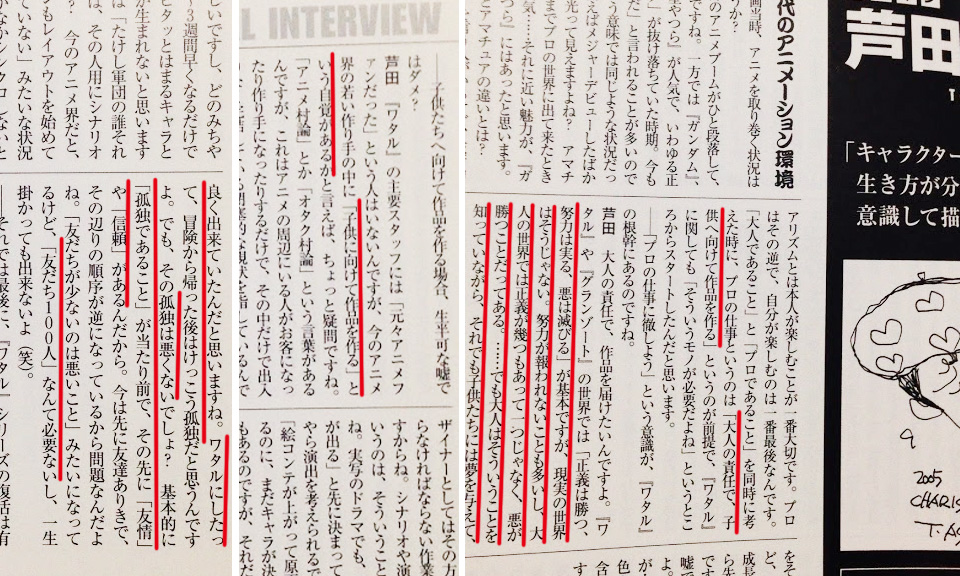 芦田
「キャラクター
生き方が分
意識して描
2005
代のアニメーション環境
画当時、アニメを取り巻く状況は
うか？
のアニメブームがひと段落して、
ですね。一方では『ガンダム』、
」が人気で、いわゆる正
」が抜け落ちていた時期。今も
だ」と言われることが多いので
いう意味では同じような状況だっ
えばメジャーデビューしたばか
光って見えますよね？　アマチ
ままでプロの世界に出て来たとき
気……それに近い魅力が、『ガ
つら』にはあったと思います。
とアマチュアの違いとは？
アリズムとは本人が楽しむことが一番大切です。プロ
はその逆で、自分が楽しむのは一番最後なんです。
「大人であること」と「プロであること」を同時に考
えた時に、プロの仕事というのは「大人の責任で、子
供へ向けて作品を作る」というのが前提で、『ワタル』
に関しても「そういうモノが必要だよね」というとこ
ろからスタートしたんだと思います。
──「プロの仕事に徹しよう」という意識が、『ワタル』
の根幹にあるのですね。
芦田　大人の責任で、作品を届けたいんですよ。『ワ
タル』や『グランゾート』の世界では「正義は勝つ、
努力は実る、悪は滅びる」が基本ですが、現実の世界
はそうじゃない。努力が報われないことも多いし、大
人の世界では正義が幾つもあって一つじゃなく、悪が
勝つことだってある。……でも大人はそういうことを
知っていながら、それでも子供たちには夢を与えて、
L INTERVIEW
──子供たちへ向けて作品を作る場合、生半可な嘘で
はダメ？
芦田　『ワタル』の主要スタッフには「元々アニメフ
ァンだった」という人はいないんですが、今のアニメ
界の若い作り手の中に「子供に向けて作品を作る」と
いう自覚があるかと言えば、ちょっと疑問ですね。
「アニメ村論」とか「オタク村論」という言葉がある
んですが、これはアニメの周辺にいる人がお客になっ
たり作り手になったりするだけで、その中だけで出入
ザイナーとしてはその方
らなければならない作業
すからね。シナリオや演
いうのは、そういうこと
ね。実写のドラマでも、
が出る」と先に決まって
やら演出を考えられるで
「絵コンテが上がって原
るのに、まだキャラが決
もあるのですが、僕は
良いですし、どのみちや
～3週間早くなるだけで
ピタッとはまるキャラと
が生まれないと思います
は「たけし軍団の誰それ
は、その人用にシナリオ
今のアニメ界だと、
もレイアウトを始めて
ていない」みたいな状況
良く出来ていたんだと思いますね。ワタルにしたっ
て、冒険から帰った後はけっこう孤独だと思うんです
よ。でも、その孤独は悪くないでしょ？　基本的に
「孤独であること」が当たり前で、その先に「友情」
や「信頼」があるんだから。今は先に友達ありきで、
その辺りの順序が逆になっているから問題なんだよ
ね。「友だちが少ないのは悪いこと」みたいになって
るけど、「友だち100人」なんて必要ないし、一生
掛かっても出来ないよ（笑）。
──それでは最後に、『ワタル』シリーズの復活は有